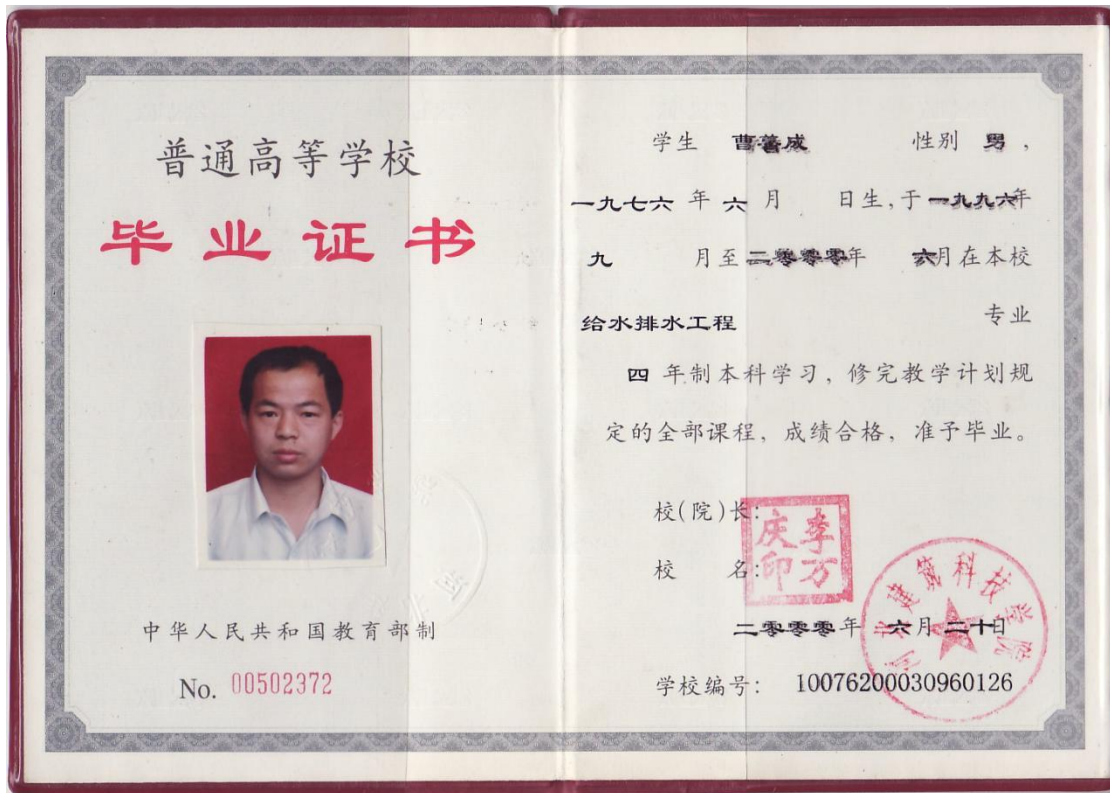 普通高等学校
毕业证书
中华人民共和国教育部制
No. 00502372
学生 曹善成 性别 男，
一九七六 年 六 月 日生，于 一九九六年
九 月至 二零零零年 六月在本校
给水排水工程 专业
四 年制本科学习，修完教学计划规
定的全部课程，成绩合格，准予毕业。
校(院)长：
李万
庆印
校 名：
河北建筑科技学院
二零零零年 六月二十日
学校编号： 10076200030960126